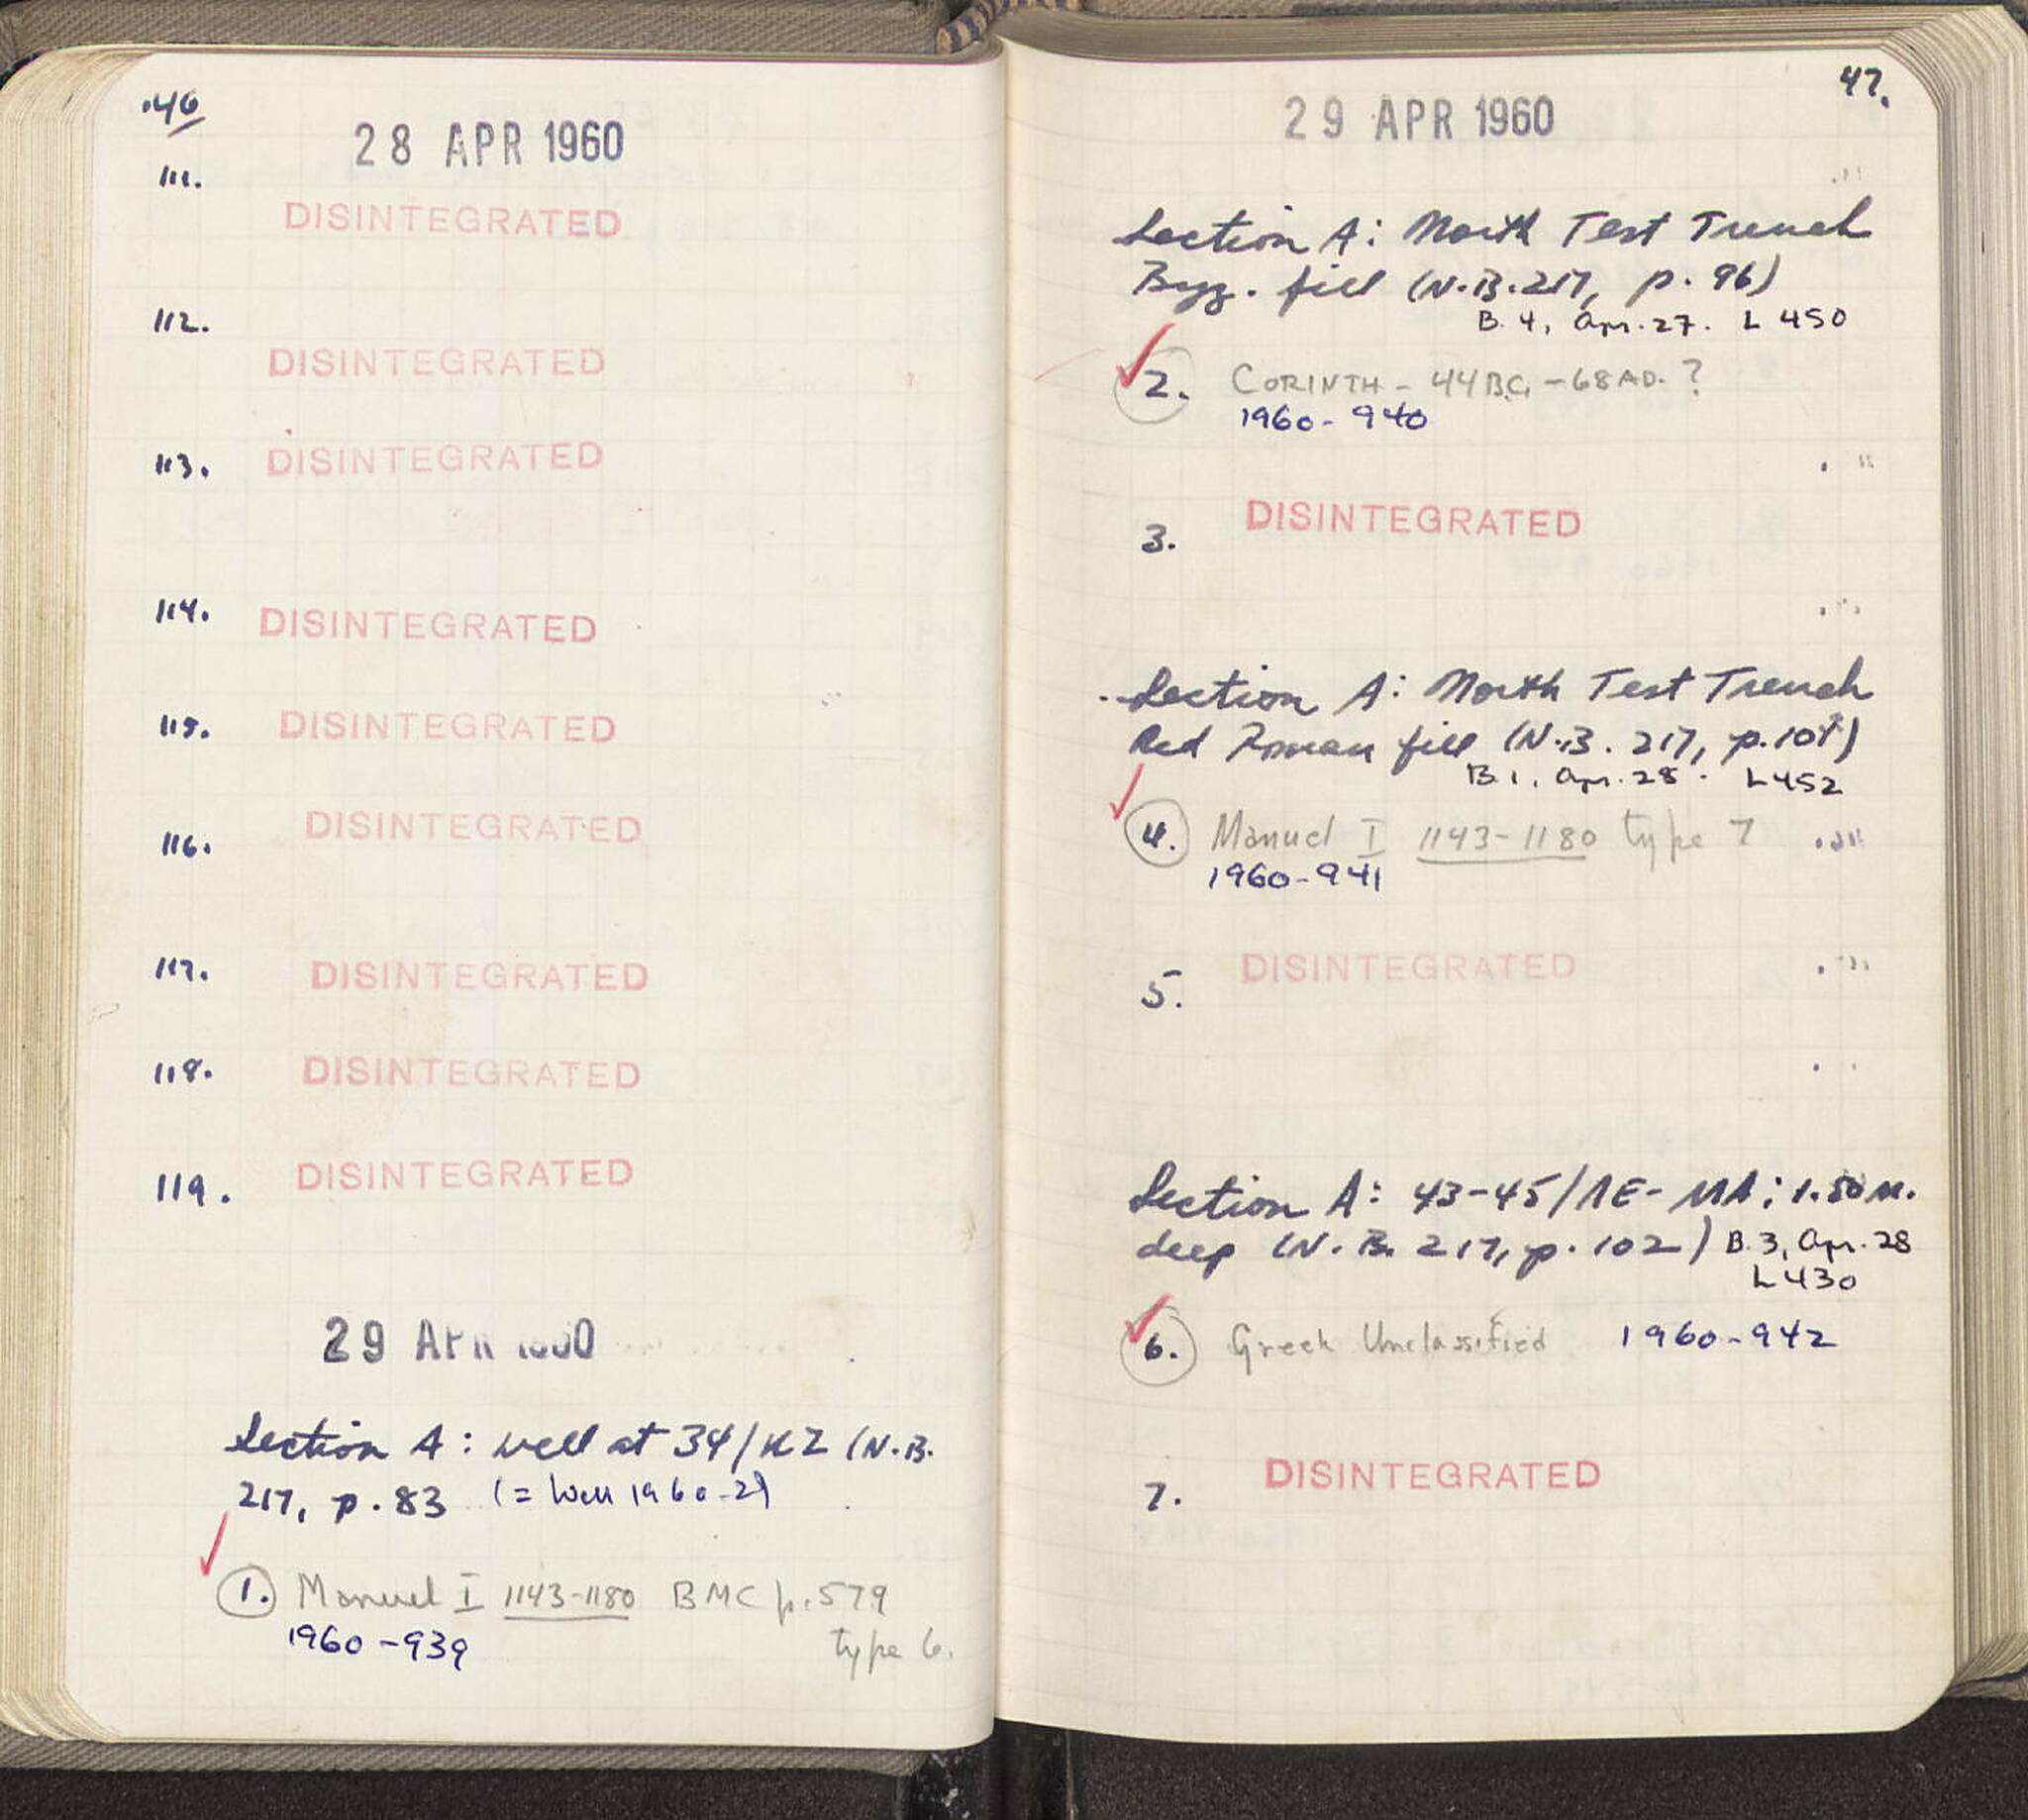 46
28 APR 1960
111.
DISINTEGRATED
112.
DISINTEGRATED
113. DISINTEGRATED
114. DISINTEGRATED
115. DISINTEGRATED
116. DISINTEGRATED
117. DISINTEGRATED
118. DISINTEGRATED
119. DISINTEGRATED
29 APR 1960
Section A: well at 34/KZ (N.B.
217, p. 83 (= Well 1960-2)
1. Manuel I 1143-1180 BMC p. 579
type 6.
1960-939
47.
29 APR 1960
Section A: North Test Trench
Byz. fill (N.B. 217, p. 96)
B. 4, Apr. 27. L 450
2. CORINTH - 44 B.C. - 68 A.D. ?
1960-940
3. DISINTEGRATED
Section A: North Test Trench
Red Roman fill (N.B. 217, p. 101)
B. 1, Apr. 28. L 452
4. Manuel I 1143-1180 type 7
1960-941
5. DISINTEGRATED
Section A: 43-45/ΛE-MA; 1.50 M.
deep (N.B. 217, p. 102) B. 3, Apr. 28
L 430
6. Greek Unclassified 1960-942
7. DISINTEGRATED